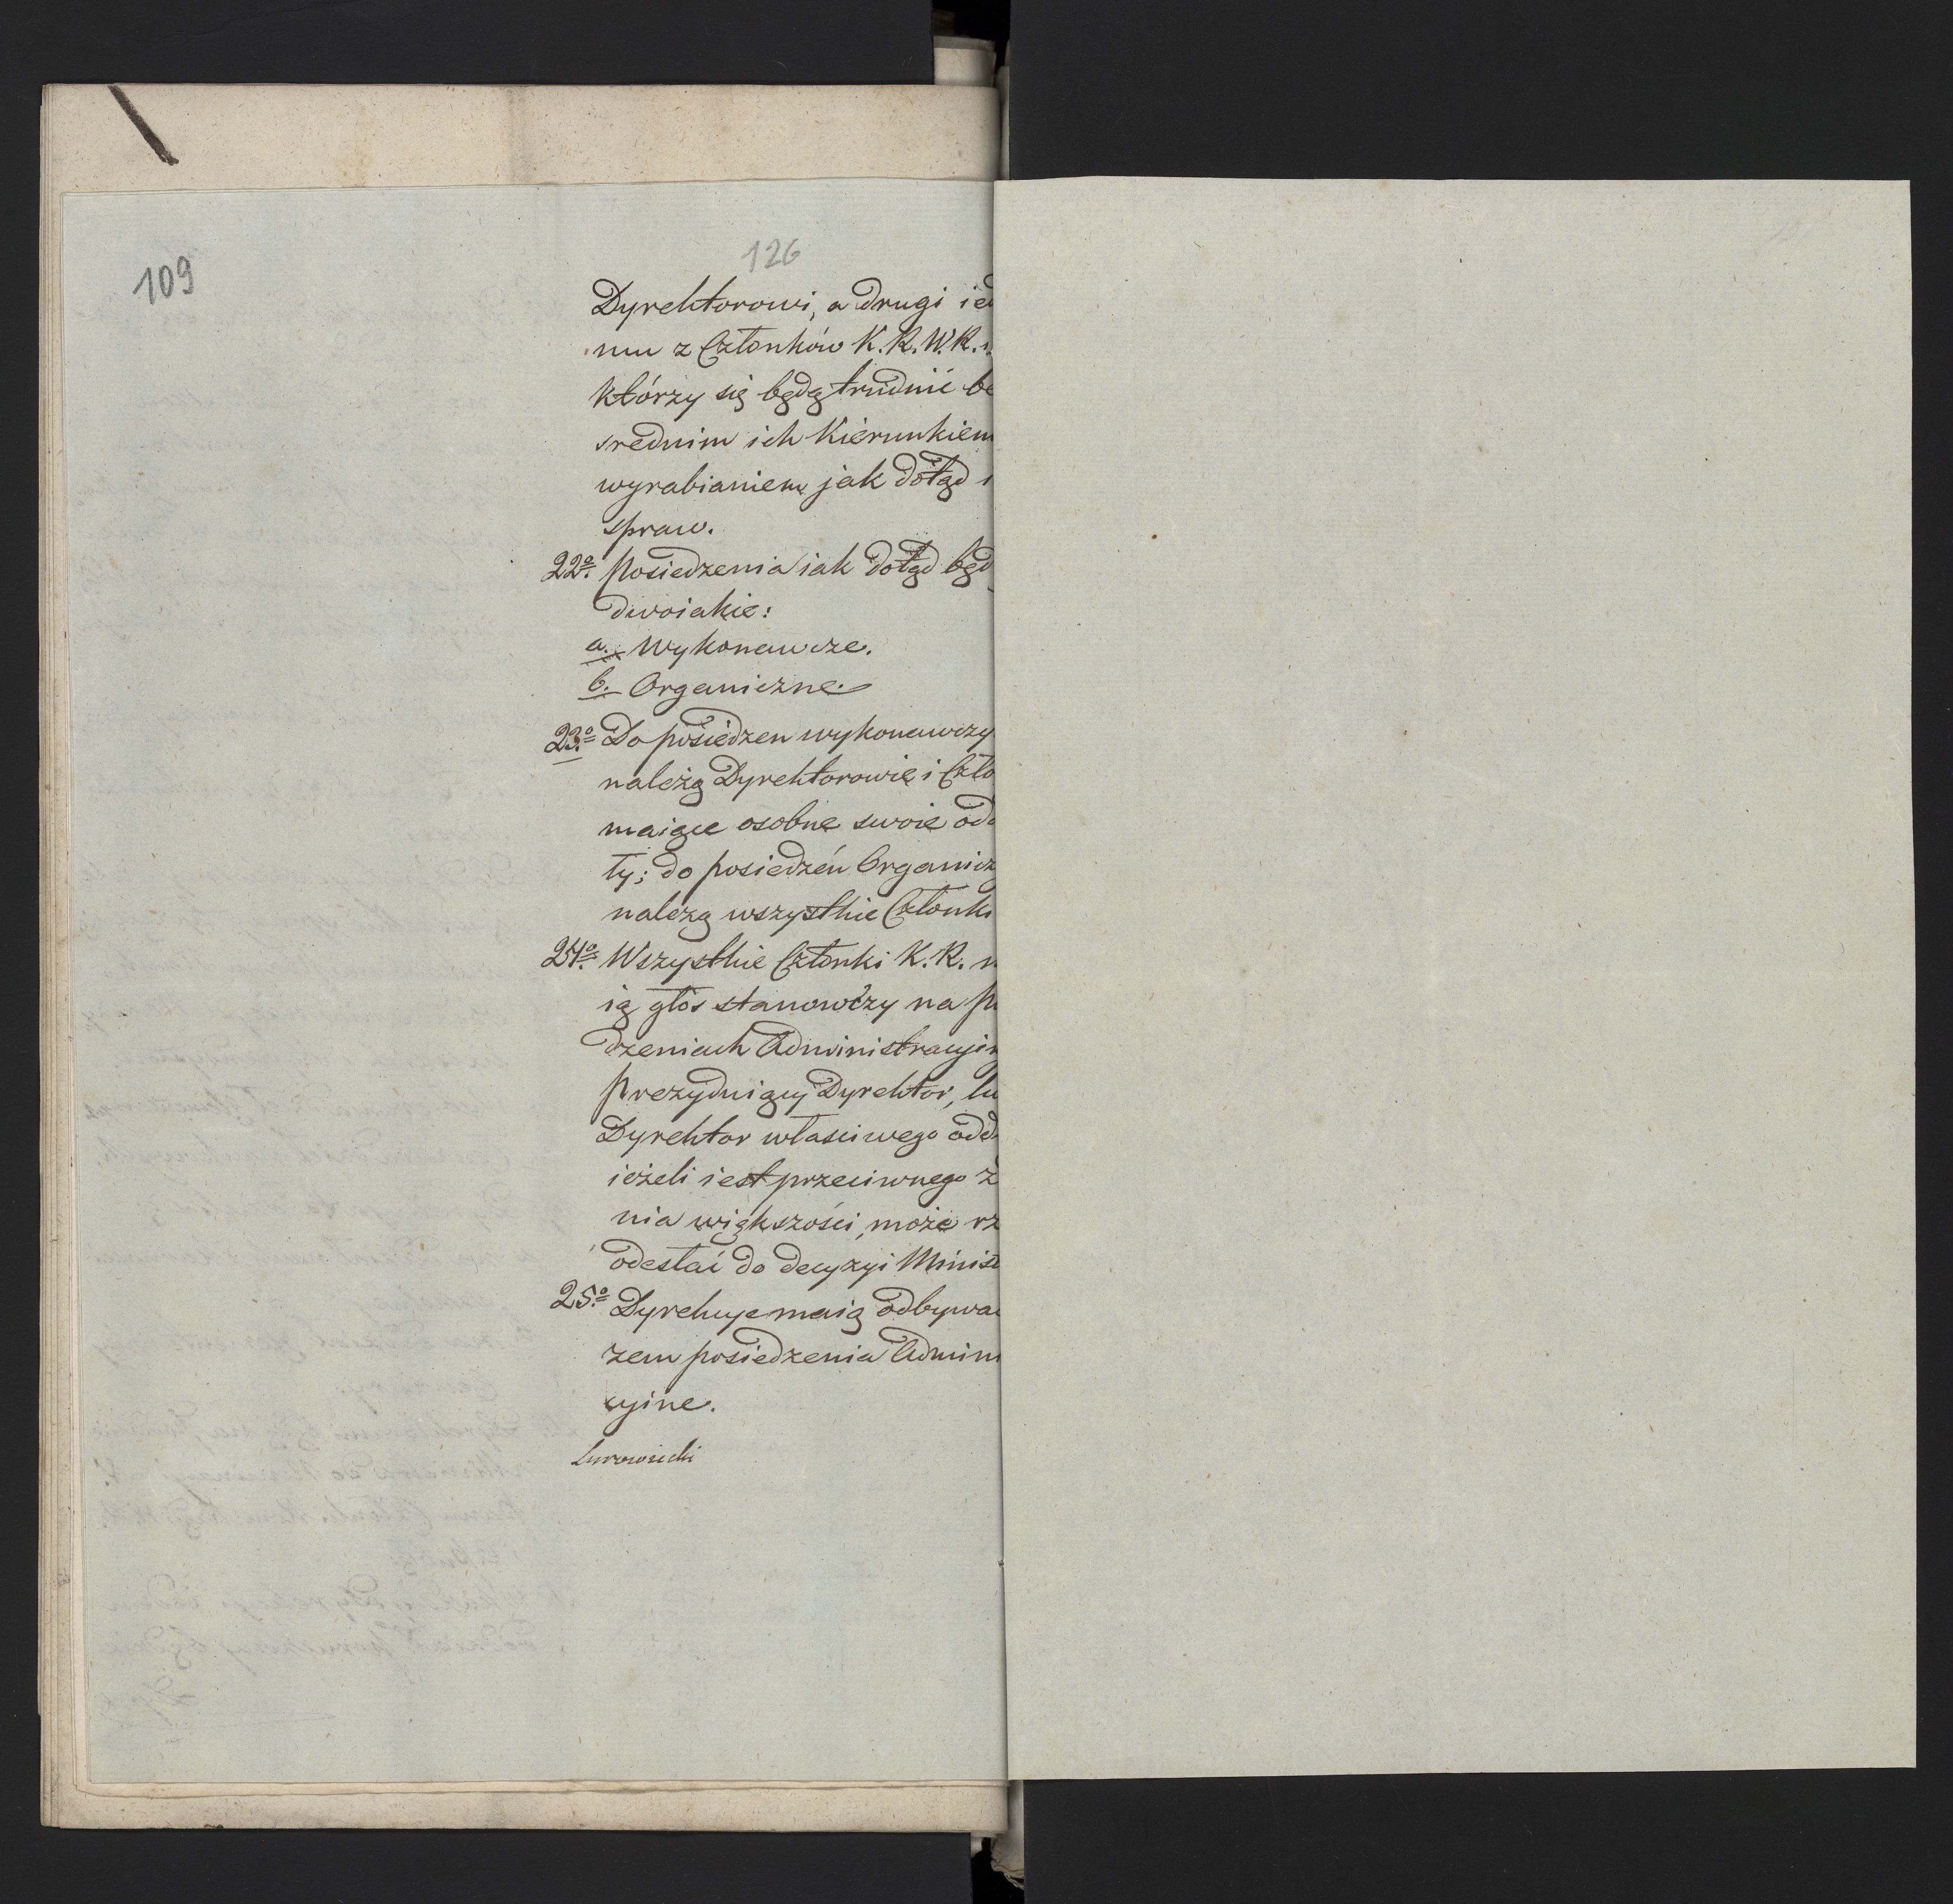 109
126
Dyrektorowi, a drugi ied
mu z Członków K. R. W. R.
którzy się będą trudnić be
srednim ich Kierunkiem
wyrabianiem jak dotąd
spraw.
22o. Posiedzenia iak dotąd będ
dwoiakie:
a. Wykonawcze.
b. Organiczne.
23o. Do posiedzen wykonawczy
należą Dyrektorowie i Czło
maiące osobne swoie odd
ły; do posiedzeń Organicz
należą wszystkie Członki
24o. Wszystkie Członki K. R. m
ią głos stanowczy na po
dzeniach Administracyin
Prezyduiący Dyrektor, lu
Dyrektor właściwego odd
ieżeli iest przeciwnego z
nia większości, może rz
odesłać do decyzyi Minist
25o. Dyrekcye maią odbywa
zem posiedzenia Admini
cyine.
Surowiecki